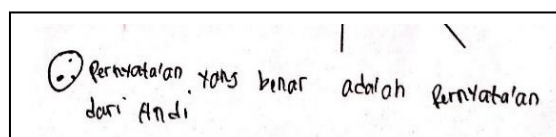 Pernyata'an yang benar adalah Pernyata'an
dari Andi